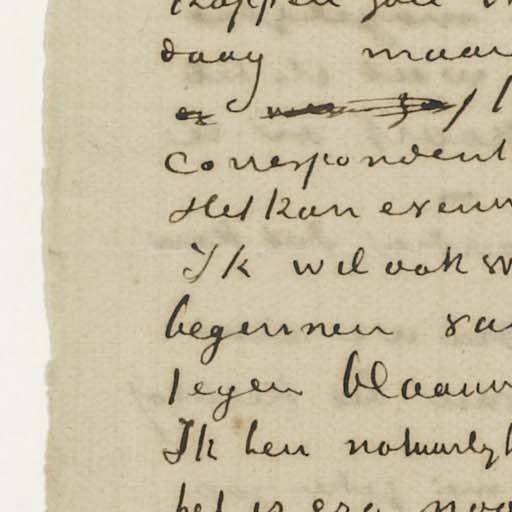 daag maar
correspondent
Het kan evenm
Ik wil ook v
beginnen va
tegen blaauw
Ik ben natuurlyk
het is erg noo